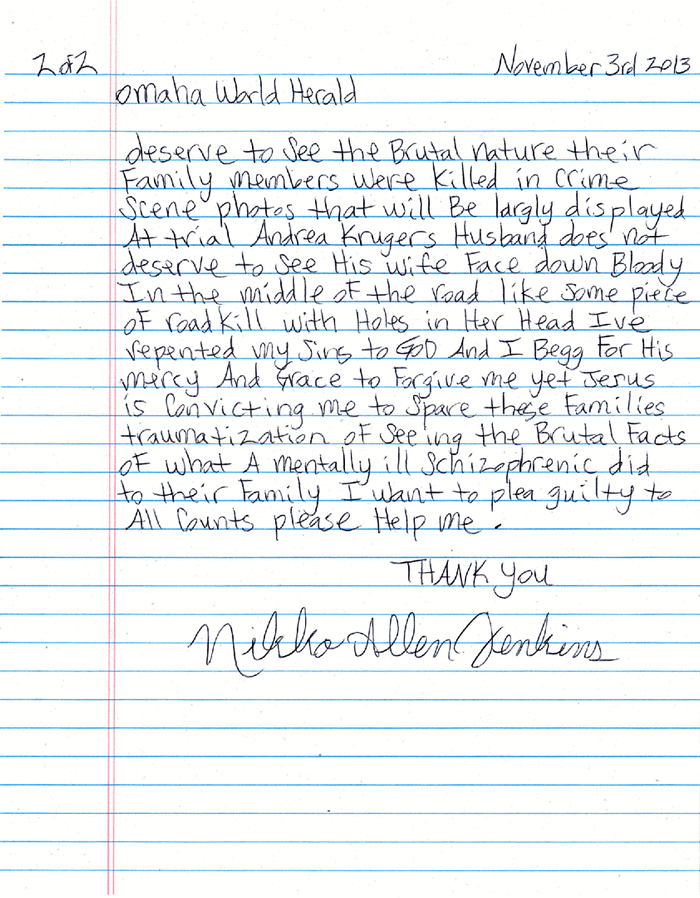 2 of 2
November 3rd 2013
omaha World Herald
deserve to see the Brutal nature their
Family members were killed in Crime
Scene photos that will Be largly displayed
At trial Andrea Krugers Husband does not
deserve to see His wife Face down Bloody
In the middle of the road like some piece
of roadkill with Holes in Her Head I've
repented my Sins to GOD And I Begg For His
mercy And Grace to Forgive me yet Jesus
is Convicting me to Spare these Families
traumatization of Seeing the Brutal Facts
of what A mentally ill Schizophrenic did
to their Family I want to plea guilty to
All Counts please Help me.
THANK YOU
Nikko Allen Jenkins